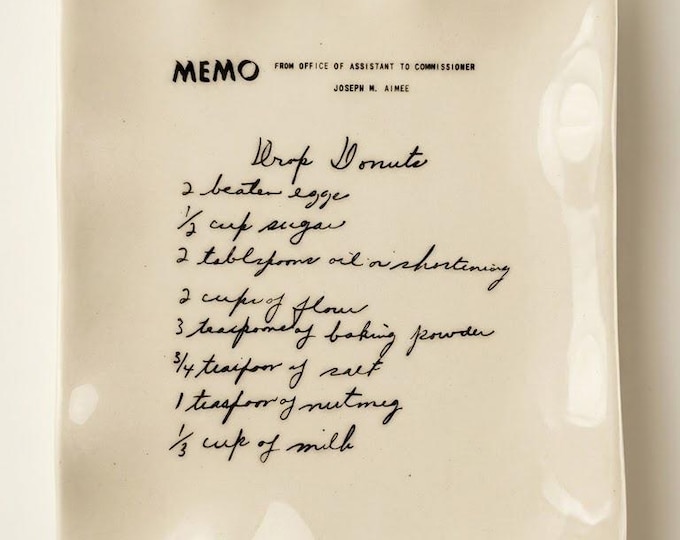 MEMO FROM OFFICE OF ASSISTANT TO COMMISSIONER
JOSEPH M. AIMEE
Drop Donuts
2 beaten eggs
1/2 cup sugar
2 tablspoons oil or shortening
2 cups of flour
3 teaspoons of baking powder
3/4 teaspoon of salt
1 teaspoon of nutmeg
1/3 cup of milk